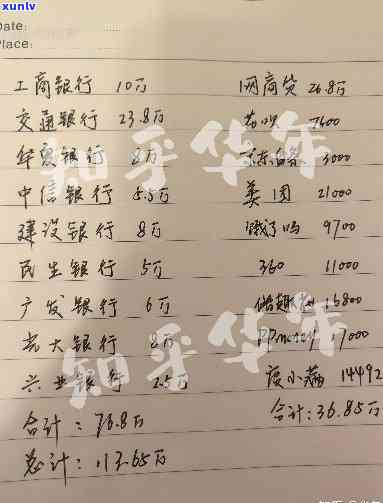 xunlv
Date:
Place:
工商银行 10万 网商贷 26.8万
交通银行 23.8万 7600
华夏银行 京东白条 3000
中信银行 5.5万 美团 21000
建设银行 8万 饿了吗 9700
民生银行 5万 360 11000
广发银行 6万 16800
光大银行 8万 PPmoney 17000
兴业银行 2.5万 度小满 14492
合计:76.8万 合计:36.85万
总计:113.65万
知乎华年
知乎华年